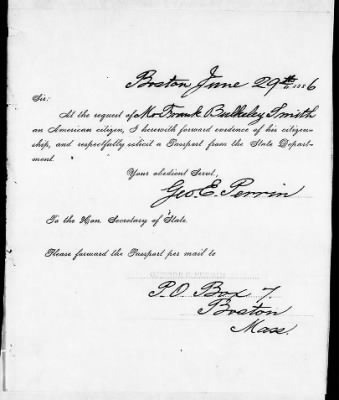 Boston June 29th 1886
Sir:
At the request of Mr Frank Bulkeley Smith
an American citizen, I herewith forward evidence of his citizen-
ship, and respectfully solicit a Passport from the State Depart-
ment.
Your obedient Servt,
Geo. E. Perrin
To the Hon. Secretary of State.
Please forward the Passport per mail to
P.O. Box 7.
Boston
Mass.